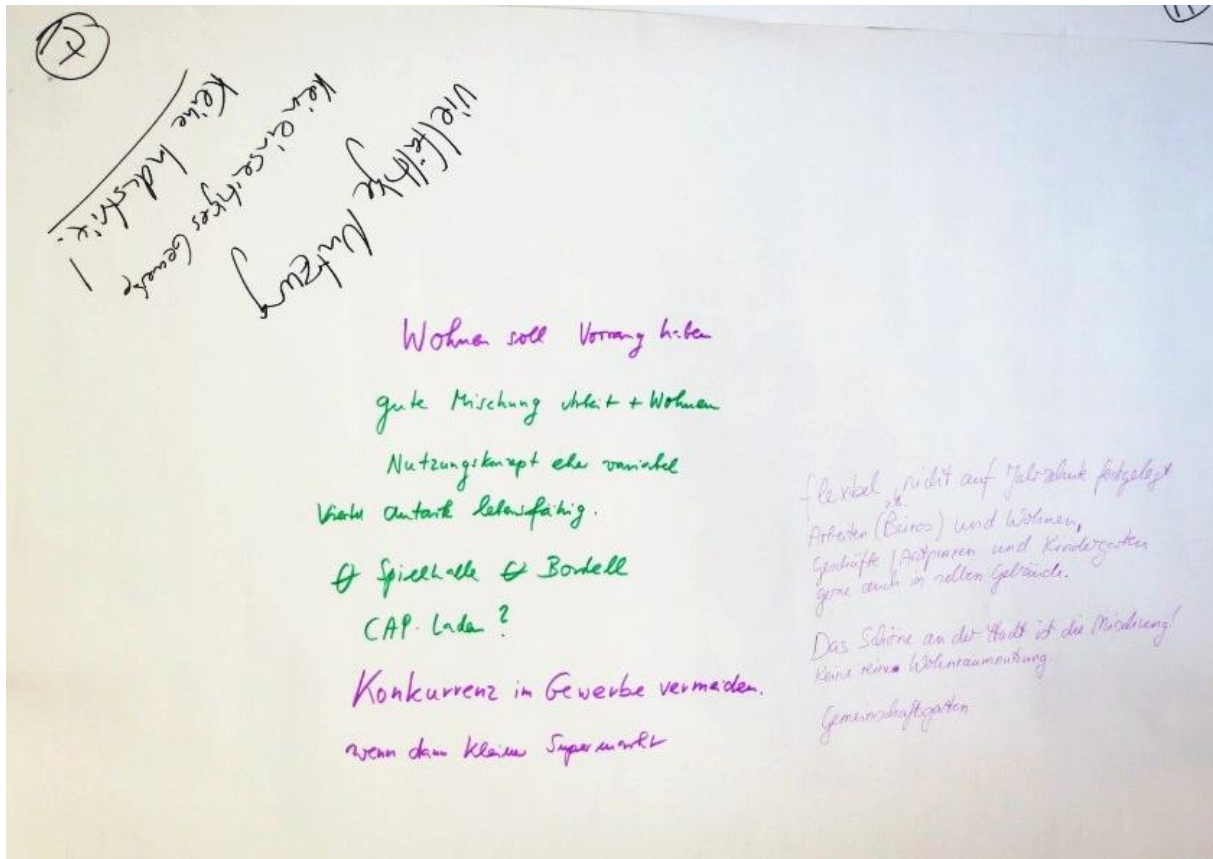 Keine Industrie!
Kein einseitiges Gewerbe
Vielfältige Nutzung
Wohnen soll Vorrang haben
gute Mischung Arbeit + Wohnen
Nutzungskonzept eher variabel
Viertel autark lebensfähig.
Spielhalle Bordell
CAP-Laden?
Konkurrenz im Gewerbe vermeiden.
wenn dann kleiner Supermarkt
flexibel, nicht auf Jahrzehnte festgelegt
z.B.
Arbeiten (Büros) und Wohnen,
Geschäfte / Arztpraxen und Kindergarten
gerne auch im selben Gebäude.
Das Schöne an der Stadt ist die Mischung!
Keine reine Wohnraumnutzung
Gemeinschaftsgarten